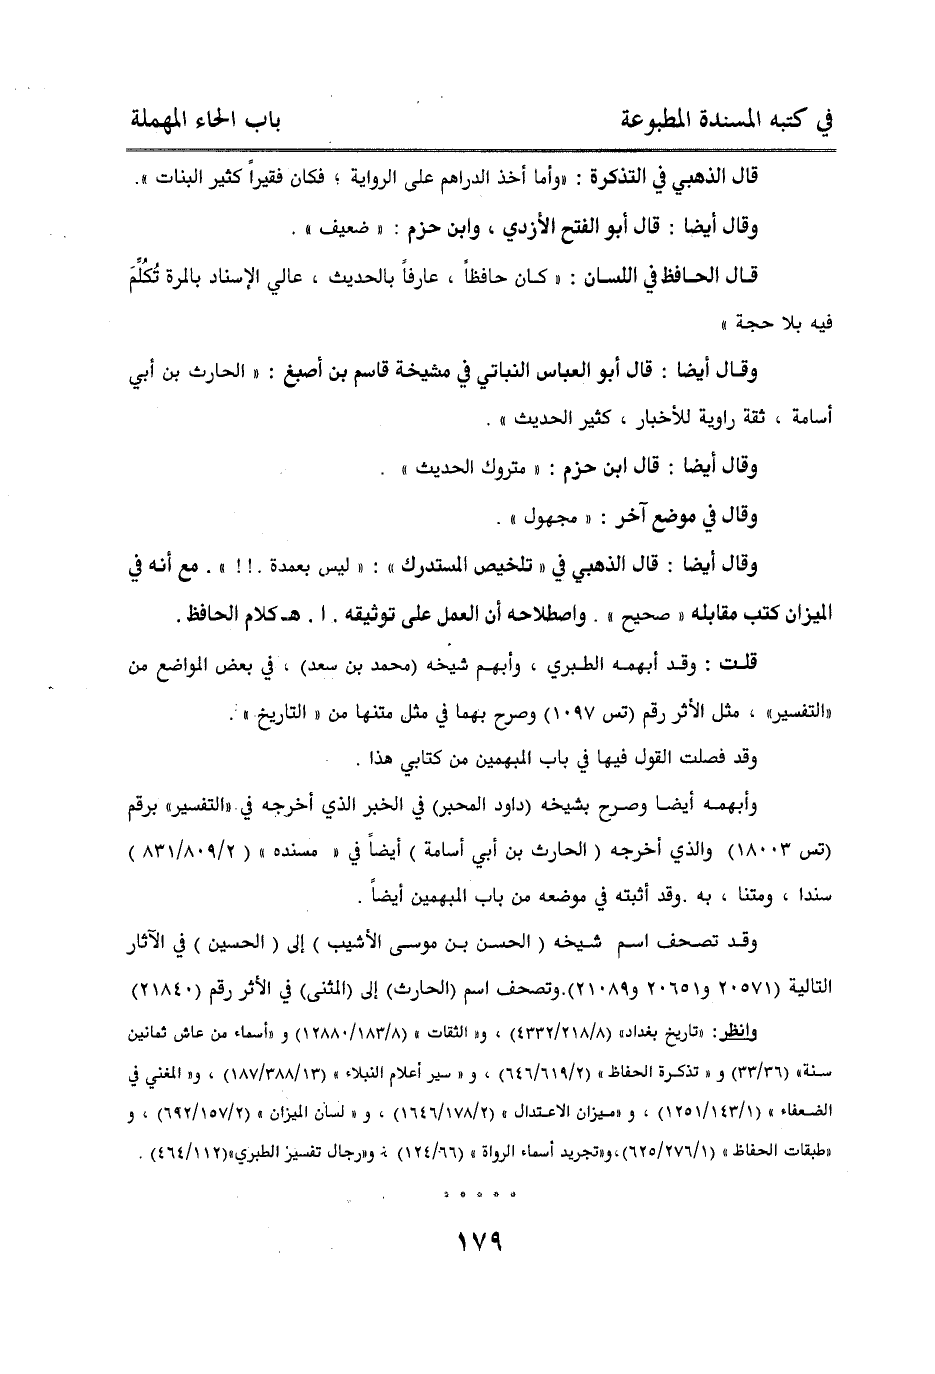 في كتبه المسندة المطبوعة باب الحاء المهملة
قال الذهبي في التذكرة : «وأما أخذ الدراهم على الرواية ؛ فكان فقيراً كثير البنات ».
وقال أيضا : قال أبو الفتح الأزدي ، وابن حزم : « ضعيف » .
قـال الحـافظ في اللسـان : « كـان حافظاً ، عارفاً بالحديث ، عالي الإسناد بالمرة تُكُلِّمَ
فيه بلا حجة »
وقـال أيضا : قال أبو العباس النباتي في مشيخة قاسم بن أصبغ : « الحارث بن أبي
أسامة ، ثقة راوية للأخبار ، كثير الحديث » .
وقال أيضا : قال ابن حزم : « متروك الحديث » .
وقال في موضع آخر : « مجهول » .
وقال أيضا : قال الذهبي في « تلخيص المستدرك » : « ليس بعمدة .!! » . مع أنه في
الميزان كتب مقابله « صحيح » . واصطلاحه أن العمل على توثيقه . ا . هـ كلام الحافظ .
قلـت : وقـد أبهمـه الطـبري ، وأبهـم شيخه (محمد بن سعد) ، في بعض المواضع من
«التفسير» ، مثل الأثر رقم (تس ١٠٩٧) وصرح بهما في مثل متنها من « التاريخ » .
وقد فصلت القول فيها في باب المبهمين من كتابي هذا .
وأبهمـه أيضـا وصـرح بشيخه (داود المحبر) في الخبر الذي أخرجه في «التفسير» برقم
(تس ١٨٠٠٣) والذي أخرجه ( الحارث بن أبي أسامة ) أيضاً في « مسنده » ( ٨٣١/٨٠٩/٢ )
سندا ، ومتنا ، به .وقد أثبته في موضعه من باب المبهمين أيضاً .
وقـد تصـحف اسـم شـيخه ( الحسـن بـن موسـى الأشيب ) إلى ( الحسين ) في الآثار
التالية (٢٠٥٧١ و٢٠٦٥١ و٢١٠٨٩).وتصحف اسم (الحارث) إلى (المثنى) في الأثر رقم (٢١٨٤٠)
وانظر: «تاريخ بغداد» (٤٣٣٢/٢١٨/٨) ، و« الثقات » (١٢٨٨٠/١٨٣/٨) و «أسماء من عاش ثمانين
سنة» (٣٣/٣٦) و « تذكـرة الحفاظ » (٦٤٦/٦١٩/٢) ، و « سير أعلام النبلاء » (١٨٧/٣٨٨/١٣) ، و« المغني في
الضعفاء » (١٢٥١/١٤٣/١) ، و «ميزان الاعتدال » (١٦٤٦/١٧٨/٢) ، و « لسان الميزان » (٦٩٢/١٥٧/٢) ، و
«طبقات الحفاظ » (٦٢٥/٢٧٦/١)،و«تجريد أسماء الرواة » (١٢٤/٦٦) ؛ و«رجال تفسير الطبري»(٤٦٤/١١٢) .
* * * * *
١٧٩